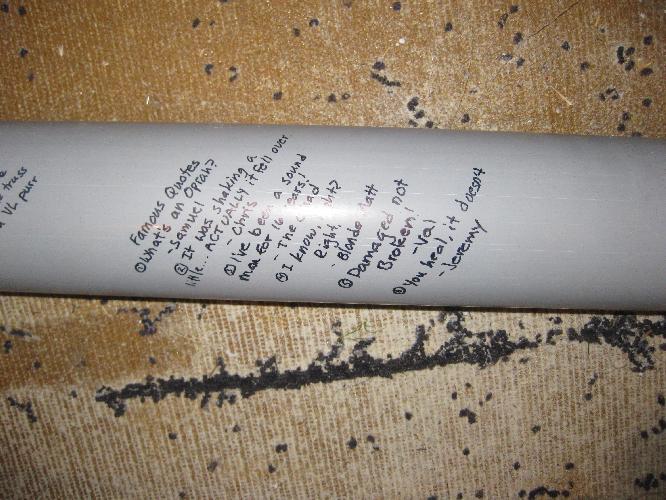 truss
a VL purr
Famous Quotes
① What's an Oprah?
- Samuel
② It was shaking a
little... ACTUALLY it fell over
- Chris
③ I've been a sound
man for 16 years!
- The Chad
④ I know,
Right?
- Blonde Matt
⑤ Damaged not
Broken!
- Val
⑥ You heal, it doesnt
- Jeremy